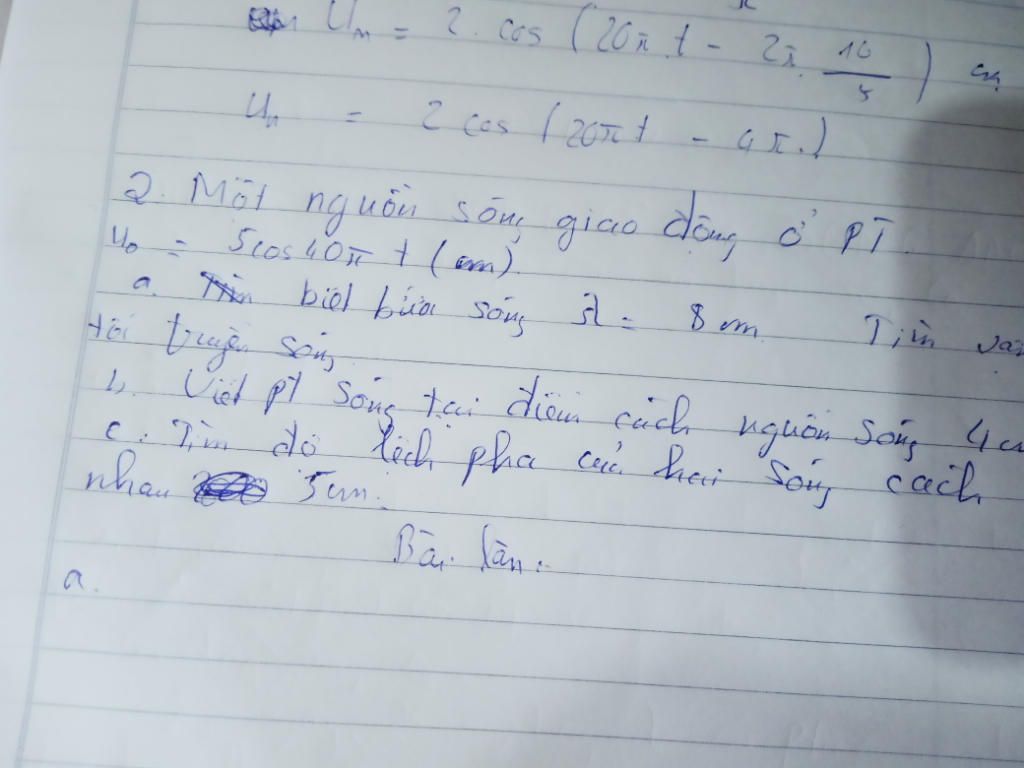 U_M = 2. cos (20π.t - 2π. 10/5) cm
U_M = 2 cos (20πt - 4π.)
2. Một nguồn sóng giao động ở PT.
u₀ = 5cos40πt (cm).
a. biết bước sóng λ = 8 cm. Tìm vận
tốc truyền sóng
b. Viết pt sóng tại điểm cách nguồn sóng 4 cm
c. Tìm độ lệch pha của hai sóng cách
nhau 5cm.
Bài làm.
a.